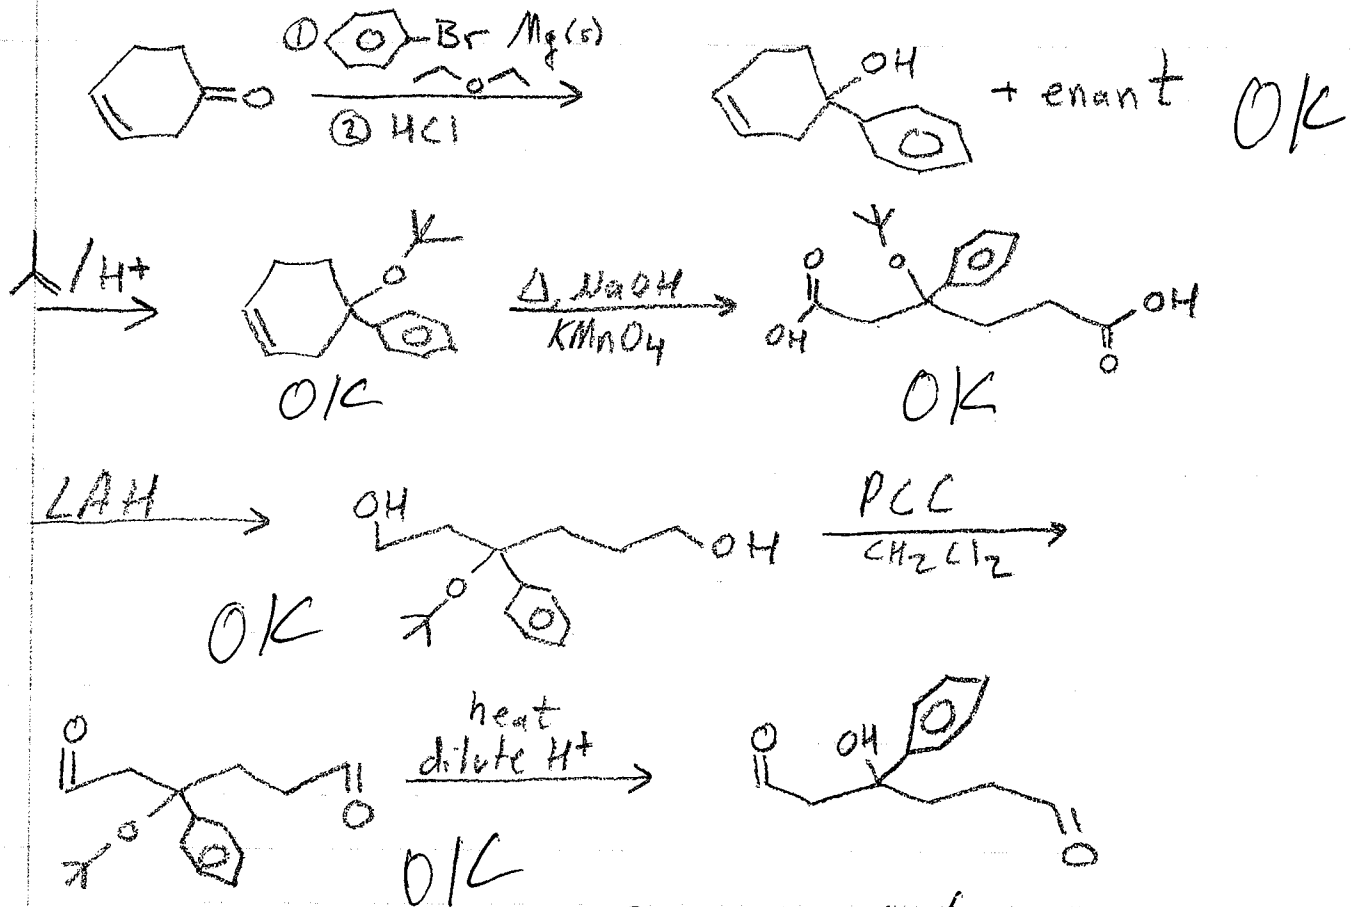 ① Br Mg(s)
O
② HCl
O OH + enant OK
/H+ O Δ, NaOH
KMnO4
O O OH
OH O
OK OK
LAH OH PCC
OH CH2Cl2
O
OK
O heat
dilute H+ O OH
O O
O
OK